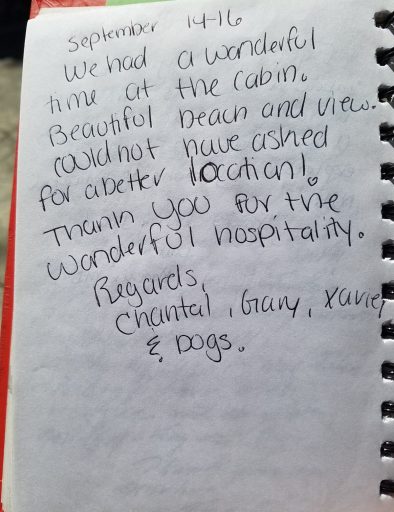 September 14-16
We had a wonderful
time at the cabin.
Beautiful beach and view.
could not have asked
for a better location!
Thank you for the
wonderful hospitality.
Regards,
Chantal, Gary, Xavier
& Dogs.